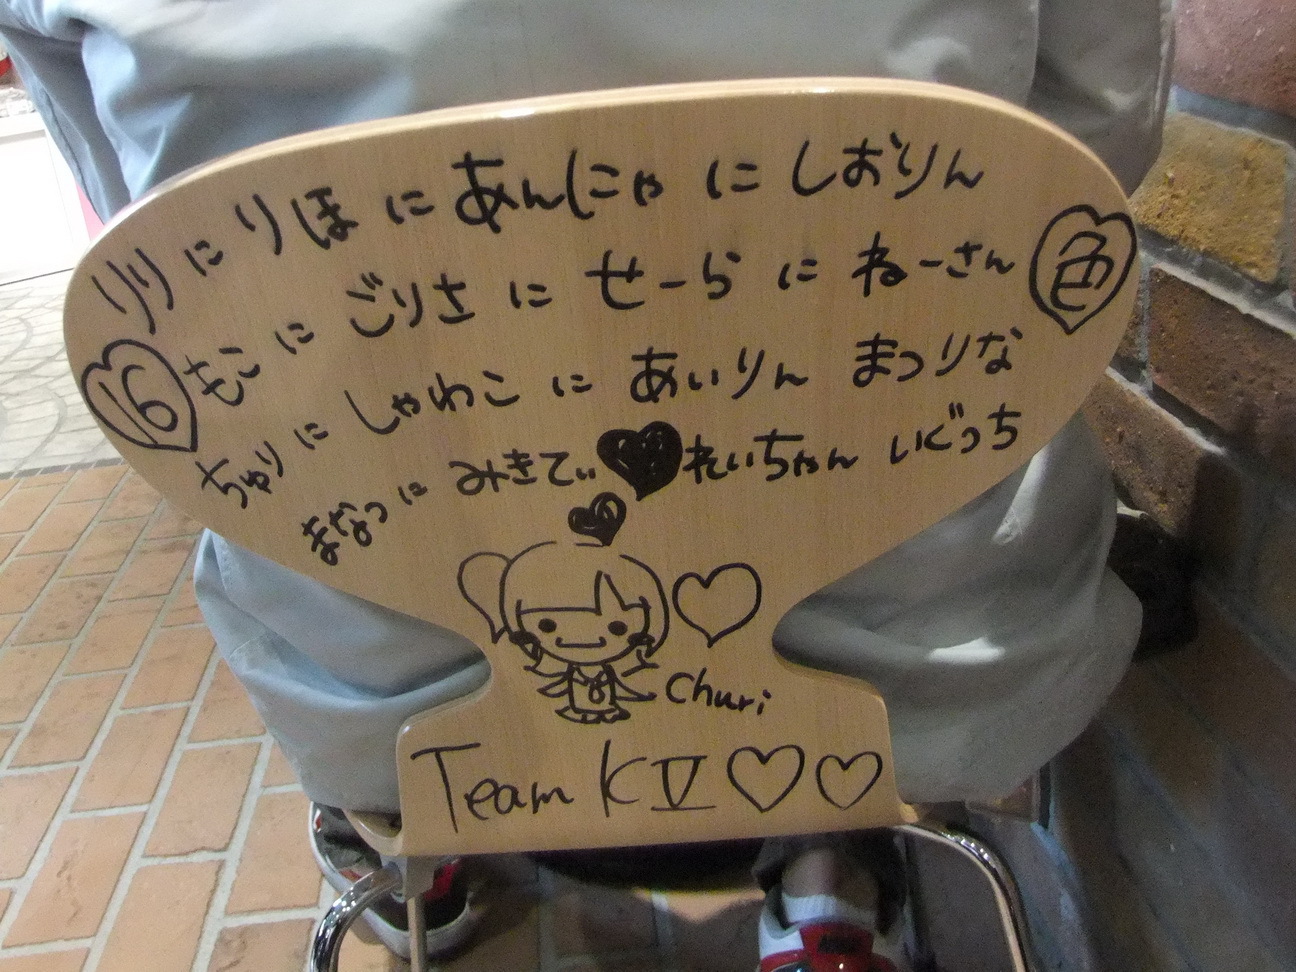 りりに りほ に あんにゃ に しおりん
もこ に ごりさ に せーら に ねーさん
16
色
ちゅり に しゃわこ に あいりん まつりな
まなつ に みきてぃ れいちゃん いぐっち
churi
Team KⅤ